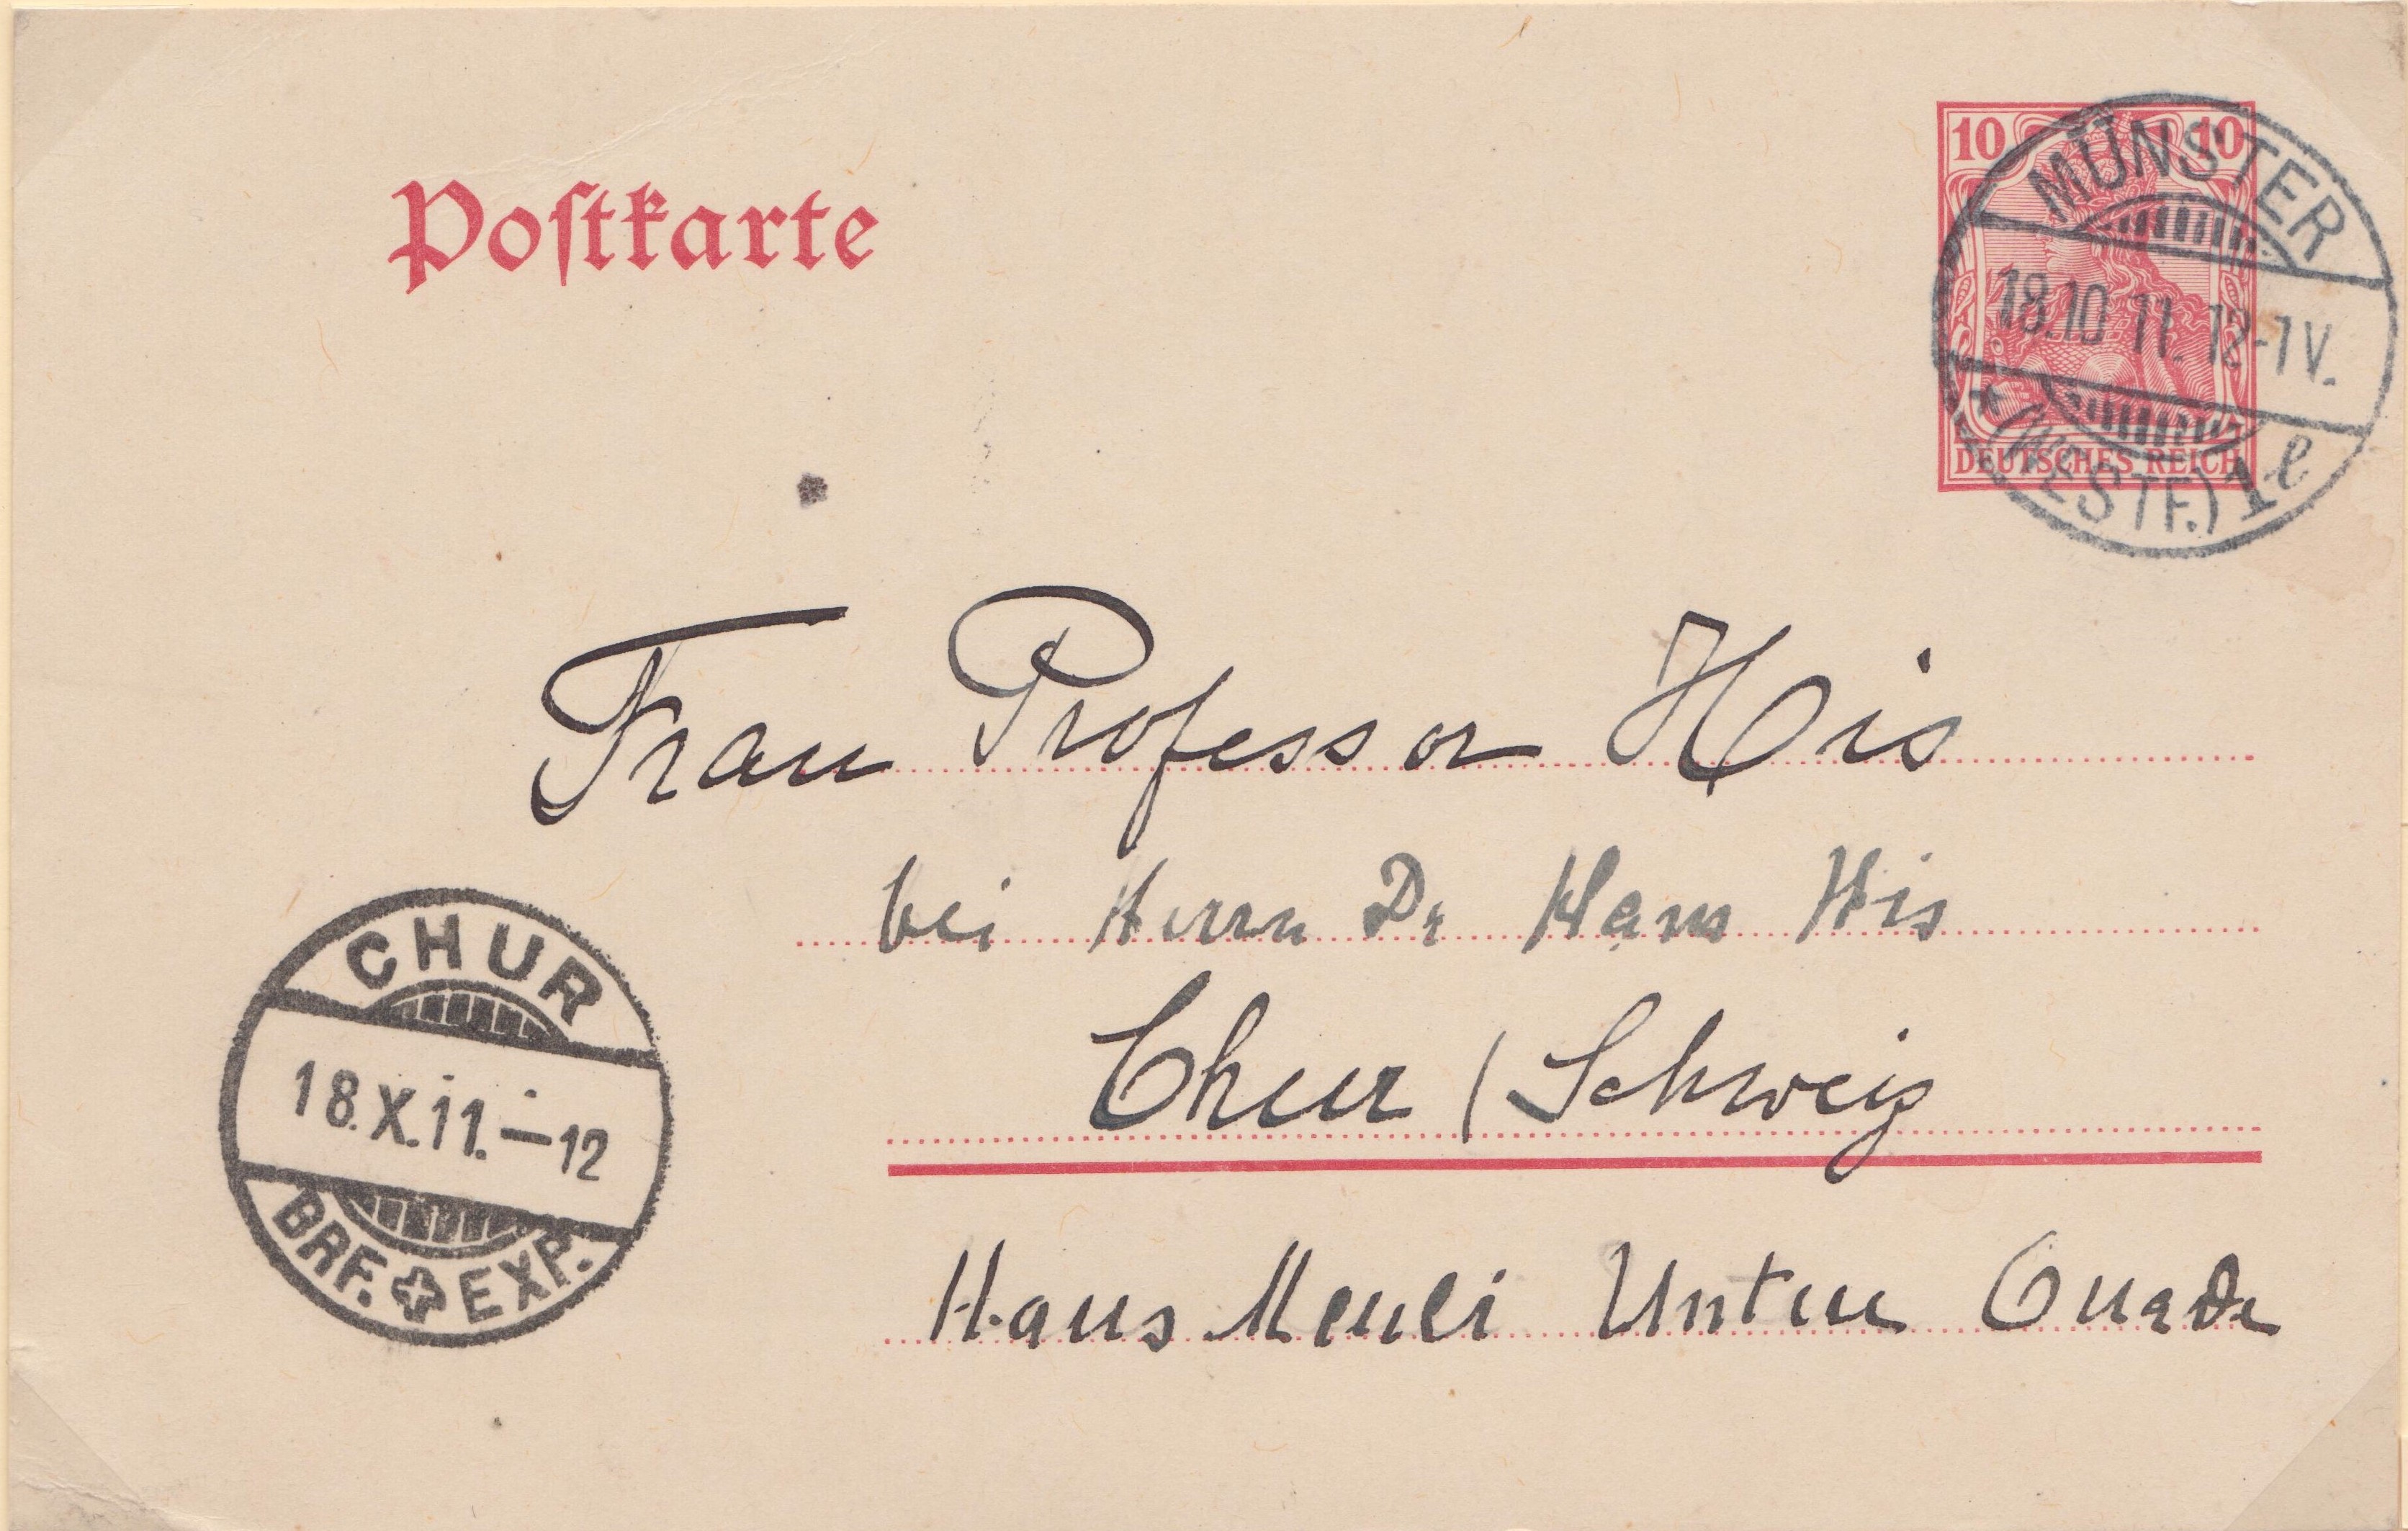 Postkarte
10 10
DEUTSCHES REICH
MÜNSTER
18.10 11. 12-1 V.
* (WESTF.) 1 l
Frau Professor His
bei Herrn Dr Hans His
Chur / Schweiz
Haus Meuli Untere Quader
CHUR
18.X.11.—12
BRF. EXP.